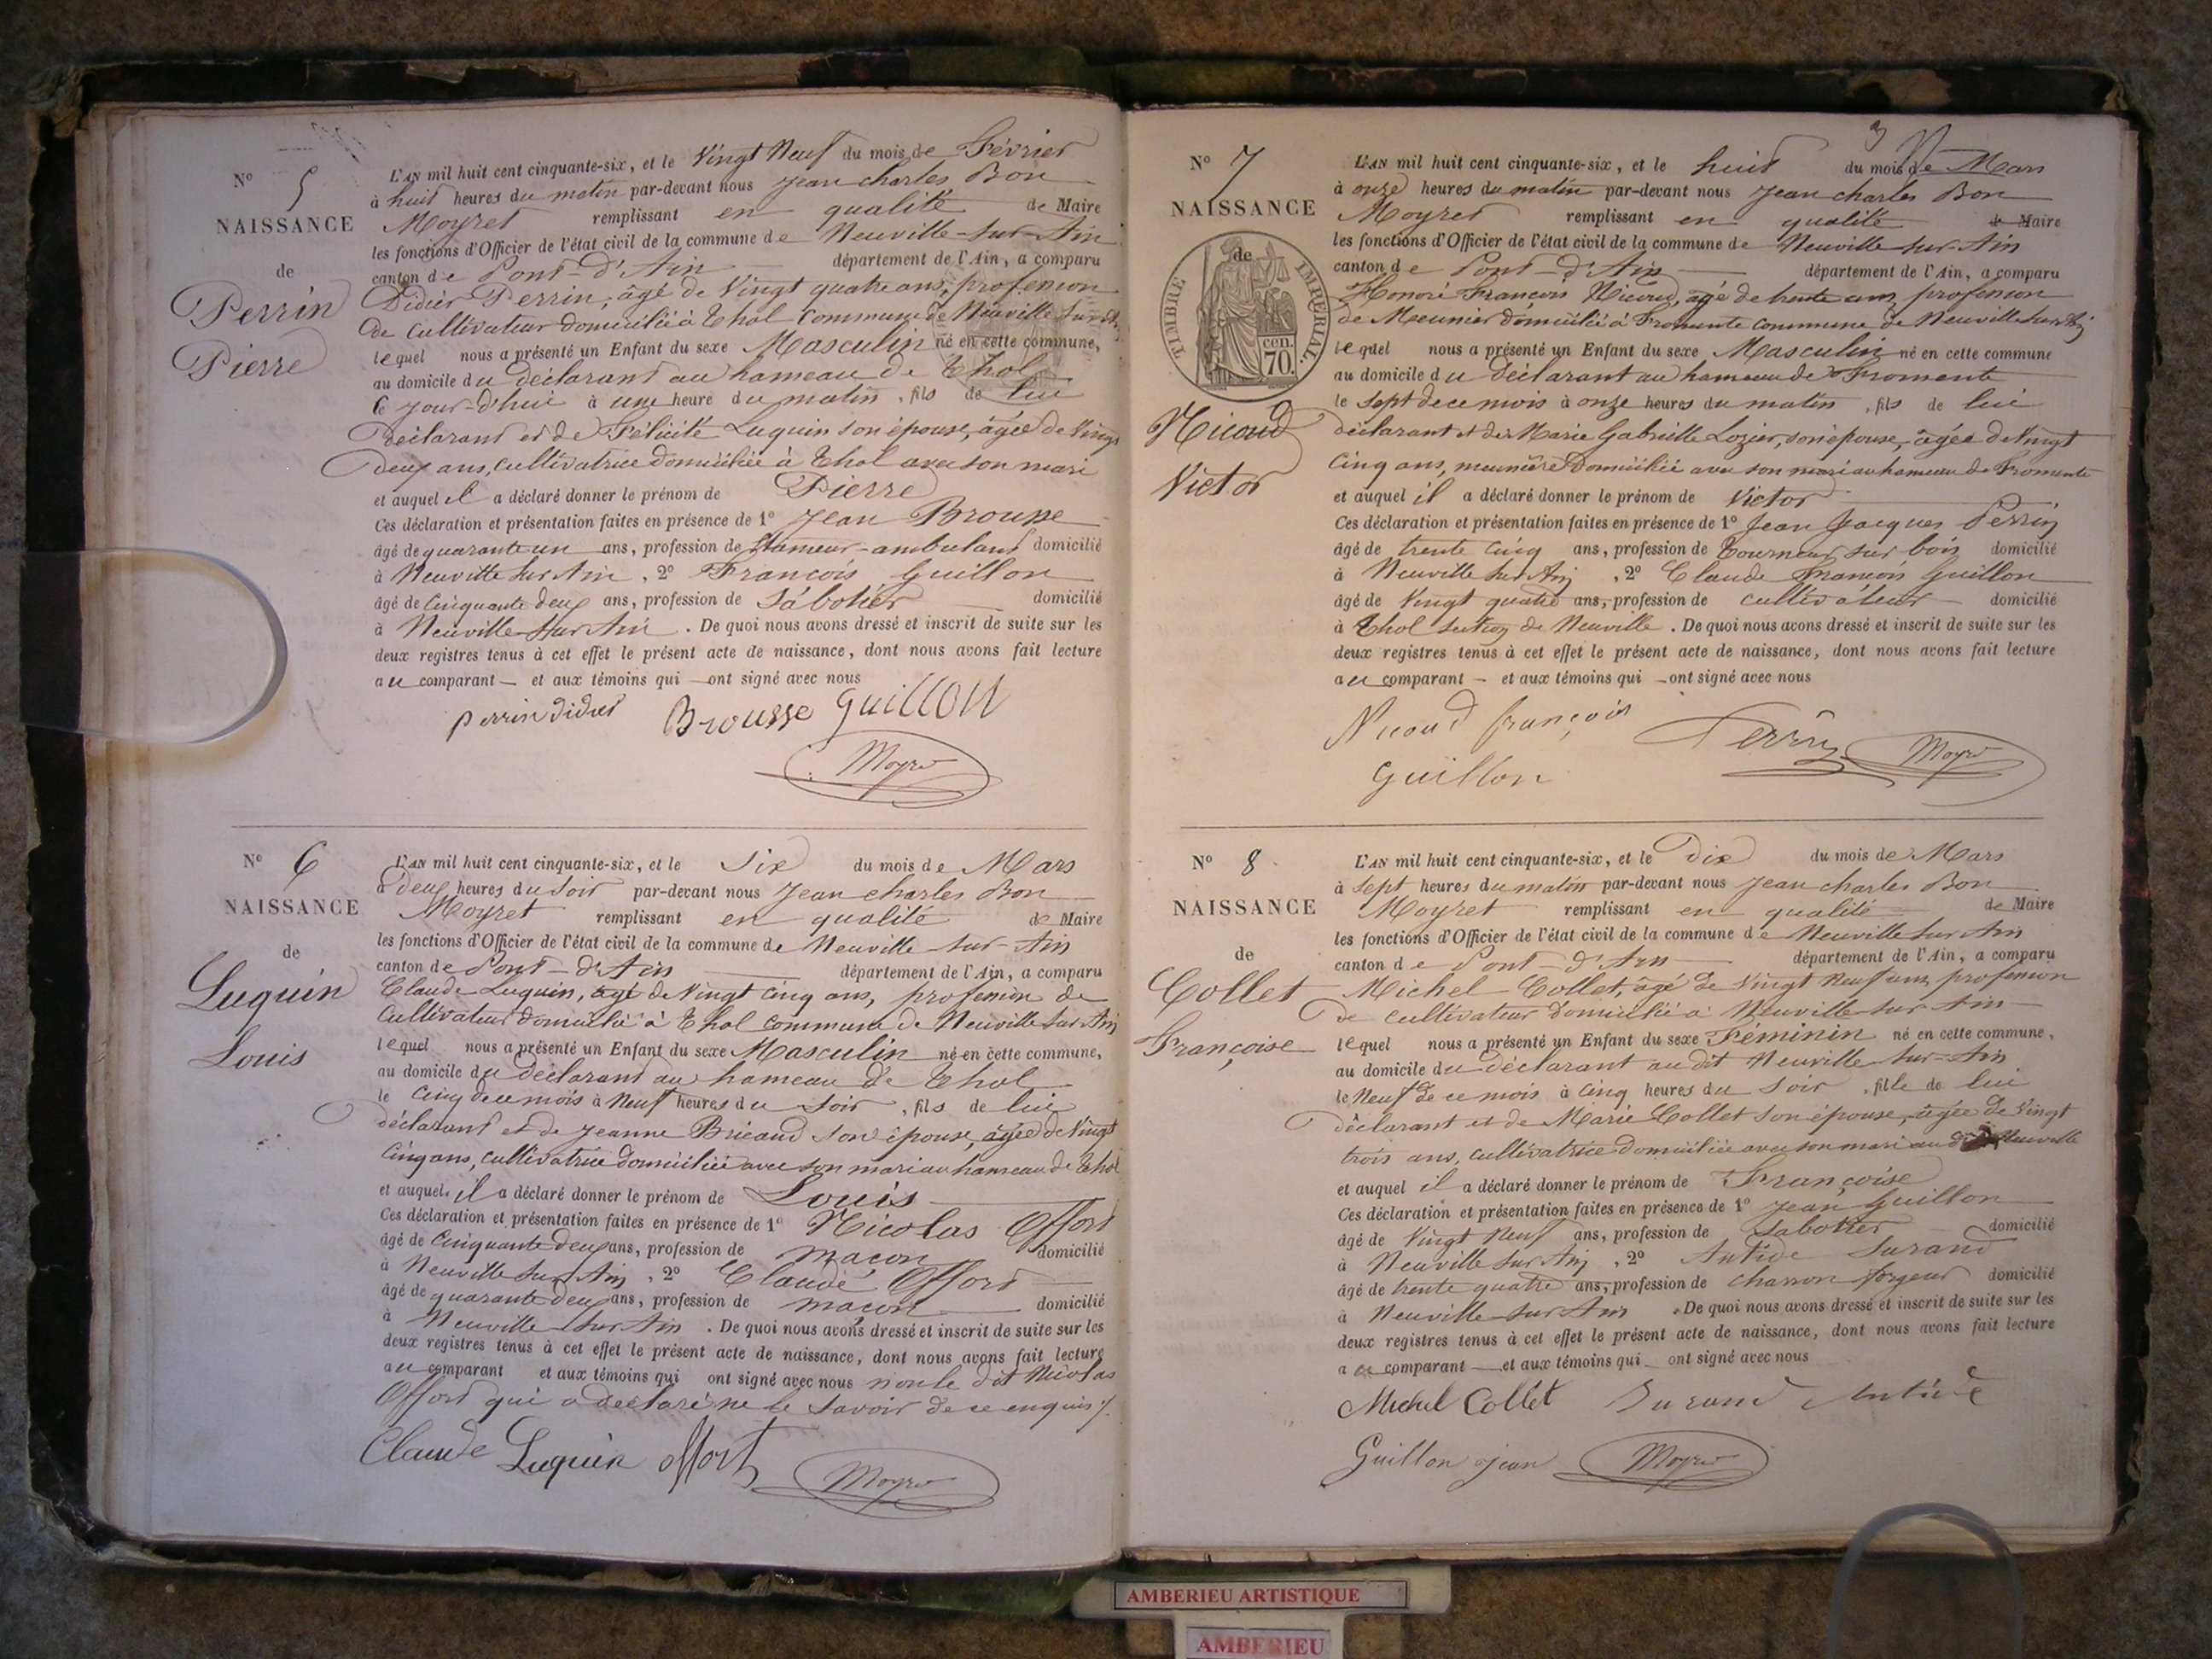 N° 5
NAISSANCE
de
Perrin
Pierre
L'AN mil huit cent cinquante-six, et le Vingt Neuf du mois de Février
à huit heures du matin par-devant nous Jean charles Bon
Moyret remplissant en qualité de Maire
les fonctions d'Officier de l'état civil de la commune de Neuville-sur-Ain
canton de Pont-d'Ain département de l'Ain, a comparu
Didier Perrin, âgé de Vingt quatre ans, profession
de cultivateur domicilié à Thol commune de Neuville sur Ain
lequel nous a présenté un Enfant du sexe Masculin né en cette commune,
au domicile du déclarant au hameau de Thol
ce jour-d'hui à une heure du matin, fils de lui
déclarant et de Félicité Luquin son épouse, âgée de Vingt
deux ans, cultivatrice domiciliée à Thol avec son mari
et auquel il a déclaré donner le prénom de Pierre
Ces déclaration et présentation faites en présence de 1° Jean Brousse
âgé de quarante un ans, profession de ambulant domicilié
à Neuville sur Ain, 2° François Guillon
âgé de Cinquante deux ans, profession de Sabotier domicilié
à Neuville-sur Ain. De quoi nous avons dressé et inscrit de suite sur les
deux registres tenus à cet effet le présent acte de naissance, dont nous avons fait lecture
au comparant — et aux témoins qui — ont signé avec nous
perrin didier Brousse Guillon
Moyret
N° 6
NAISSANCE
de
Luquin
Louis
L'AN mil huit cent cinquante-six, et le Six du mois de Mars
à deux heures du soir par-devant nous Jean charles Bon
Moyret remplissant en qualité de Maire
les fonctions d'Officier de l'état civil de la commune de Neuville-sur-Ain
canton de Pont-d'Ain département de l'Ain, a comparu
Claude Luquin, âgé de Vingt cinq ans, profession de
Cultivateur domicilié à Thol commune de Neuville sur Ain
lequel nous a présenté un Enfant du sexe Masculin né en cette commune,
au domicile du déclarant au hameau de Thol
le Cinq de ce mois à Neuf heures du soir, fils de lui
déclarant et de Jeanne Bricaud son épouse, âgée de Vingt
Cinq ans, cultivatrice domiciliée avec son mari au hameau de Thol
et auquel il a déclaré donner le prénom de Louis
Ces déclaration et présentation faites en présence de 1° Nicolas Offort
âgé de Cinquante deux ans, profession de maçon domicilié
à Neuville sur Ain, 2° Claude Offort
âgé de quarante deux ans, profession de maçon domicilié
à Neuville sur Ain. De quoi nous avons dressé et inscrit de suite sur les
deux registres tenus à cet effet le présent acte de naissance, dont nous avons fait lecture
au comparant et aux témoins qui ont signé avec nous non le dit Nicolas
Offort qui a déclaré ne le savoir de ce enquis /.
Claude Luquin offort Moyret
3
N° 7
NAISSANCE
de
TIMBRE IMPERIAL.
cen.
70.
Nicoud
Victor
L'AN mil huit cent cinquante-six, et le huit du mois de Mars
à onze heures du matin par-devant nous Jean charles Bon
Moyret remplissant en qualité de Maire
les fonctions d'Officier de l'état civil de la commune de Neuville sur Ain
canton de Pont-d'Ain département de l'Ain, a comparu
Honoré François Nicoud, âgé de trente ans, profession
de Meunier domicilié à Fromente commune de Neuville sur Ain
lequel nous a présenté un Enfant du sexe Masculin né en cette commune
au domicile du déclarant au hameau de Fromente
le sept de ce mois à onze heures du matin, fils de lui
déclarant et de Marie Gabrielle Lozier, son épouse, âgée de Vingt
Cinq ans, meunière domiciliée avec son mari au hameau de Fromente
et auquel il a déclaré donner le prénom de Victor
Ces déclaration et présentation faites en présence de 1° Jean Jacques Perrin
âgé de trente cinq ans, profession de tourneur sur bois domicilié
à Neuville sur Ain, 2° Claude François Guillon
âgé de Vingt quatre ans, profession de cultivateur domicilié
à Thol section de Neuville. De quoi nous avons dressé et inscrit de suite sur les
deux registres tenus à cet effet le présent acte de naissance, dont nous avons fait lecture
au comparant — et aux témoins qui — ont signé avec nous
Nicoud françois Perrin Moyret
Guillon
N° 8
NAISSANCE
de
Collet
Françoise
L'AN mil huit cent cinquante-six, et le Dix du mois de Mars
à sept heures du matin par-devant nous Jean charles Bon
Moyret remplissant en qualité de Maire
les fonctions d'Officier de l'état civil de la commune de Neuville sur Ain
canton de Pont-d'Ain département de l'Ain, a comparu
Michel Collet, âgé de Vingt Neuf ans, profession
de cultivateur domicilié à Neuville-sur Ain
lequel nous a présenté un Enfant du sexe Féminin né en cette commune,
au domicile du déclarant au dit Neuville sur-Ain
le Neuf de ce mois à Cinq heures du soir, fille de lui
déclarant et de Marie Collet son épouse, âgée de Vingt
trois ans, cultivatrice domiciliée avec son mari au dit Neuville
et auquel il a déclaré donner le prénom de Françoise
Ces déclaration et présentation faites en présence de 1° Jean Guillon
âgé de Vingt Neuf ans, profession de Sabotier domicilié
à Neuville sur Ain, 2° Antide Durand
âgé de trente quatre ans, profession de charron forgeur domicilié
à Neuville-sur Ain. De quoi nous avons dressé et inscrit de suite sur les
deux registres tenus à cet effet le présent acte de naissance, dont nous avons fait lecture
au comparant — et aux témoins qui — ont signé avec nous
Michel Collet Durand Antide
Guillon jean Moyret
AMBERIEU ARTISTIQUE
AMBERIEU